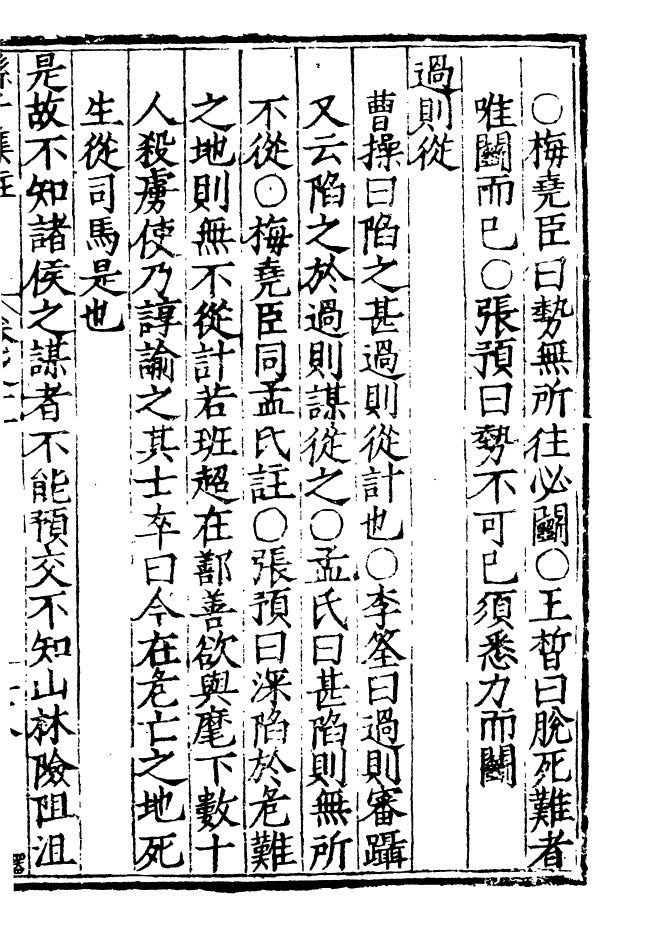 ○梅堯臣曰勢無所往必鬬○王晳曰脫死難者
唯鬬而已○張預曰勢不可已須悉力而鬬
過則從
曹操曰陷之甚過則從計也○李筌曰過則審躡
又云陷之於過則謀從之○孟氏曰甚陷則無所
不從○梅堯臣同孟氏註○張預曰深陷於危難
之地則無不從計若班超在鄯善欲與麾下數十
人殺虜使乃諄諭之其士卒曰今在危亡之地死
生從司馬是也
是故不知諸侯之謀者不能預交不知山林險阻沮